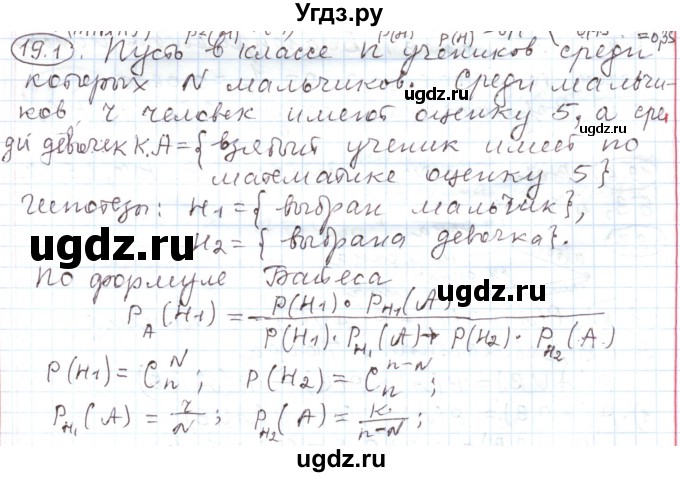 Угдз.ру
19.1. Пусть в классе n учеников среди
которых N мальчиков. Среди мальчи-
ков, r человек имеют оценку 5, а сре
ди девочек K. A = { взятый ученик имеет по
математике оценку 5}
Гипотезы: H1 = { выбран мальчик},
H2 = { выбрана девочка}.
По формуле Байеса
P_A(H1) = P(H1) · P_H1(A) / P(H1) · P_H1(A) + P(H2) · P_H2(A)
P(H1) = C_n^N ; P(H2) = C_n^{n-N} ;
P_H1(A) = r/N ; P_H2(A) = K/n-N ;
ugdz.ru
ugdz.ru
ugdz.ru
ugdz.ru
ugdz.ru
ugdz.ru
ugdz.ru
ugdz.ru